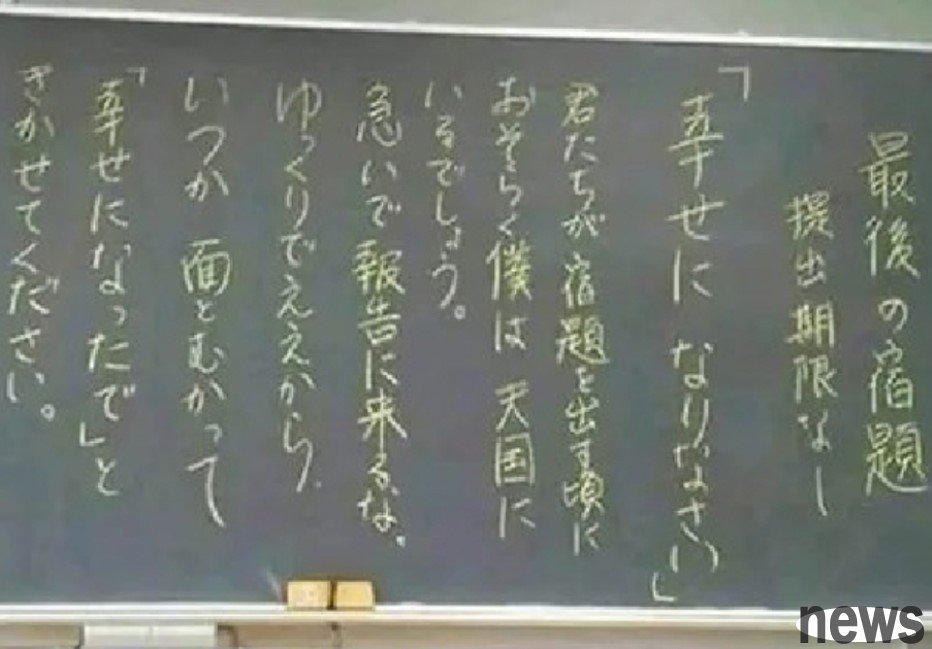 最後の宿題
提出期限なし
「幸せになりなさい」
君たちが宿題を出す頃に
おそらく僕は天国に
いるでしょう。
急いで報告に来るな。
ゆっくりでええから、
いつか面とむかって
「幸せになったで」と
きかせてください。
news